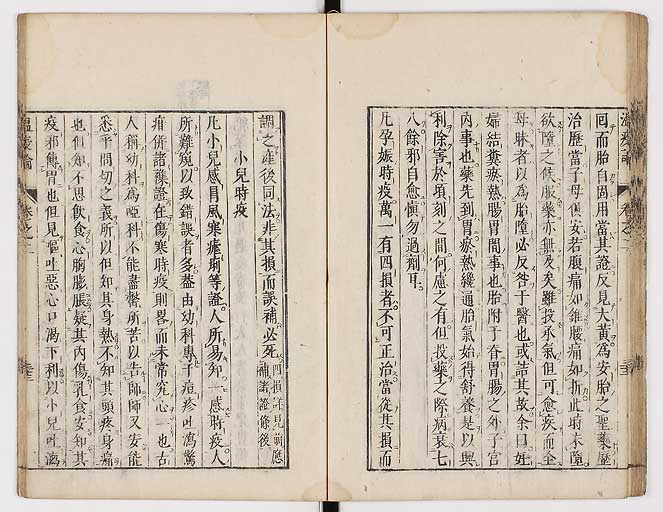 回而胎自固用當其證反見大黃爲安胎之聖藥歷
治歷當子母俱安若腹痛如錐腰痛如折此時未墮
欲墮之候服藥亦無及矣雖投承氣但可愈疾而全
母昧者以爲胎墮必反咎于醫也或詰其故余曰妊
婦結糞瘀熱腸胃間事也胎附于脊胃腸之外子宮
内事也藥先到胃瘀熱纔通胎氣始得舒養是以興
利除害於頃刻之間何慮之有但投藥之際病衰七
八餘邪自愈愼勿過劑耳
凡孕娠時疫萬一有四損者不可正治當從其損而
溫疫論
卷之二
調之產後同法非其損而誤補必死四損詳見前應補諸證條後
小兒時疫
凡小兒感冒風寒瘧痢等證人所易知一感時疫人
所難窺以致錯誤者多蓋由幼科專于痘疹吐瀉驚
疳併諸雜證在傷寒時疫則畧而未常究心一也古
人稱幼科爲啞科不能盡罄所苦以告師師又安能
悉乎問切之義所以但知其身熱不知其頭疼身痛
也但知不思飲食心胸膨脹疑其内傷乳食安知其
疫邪傳胃也但見嘔吐惡心口渴下利以小兒吐瀉
溫疫論
卷之二